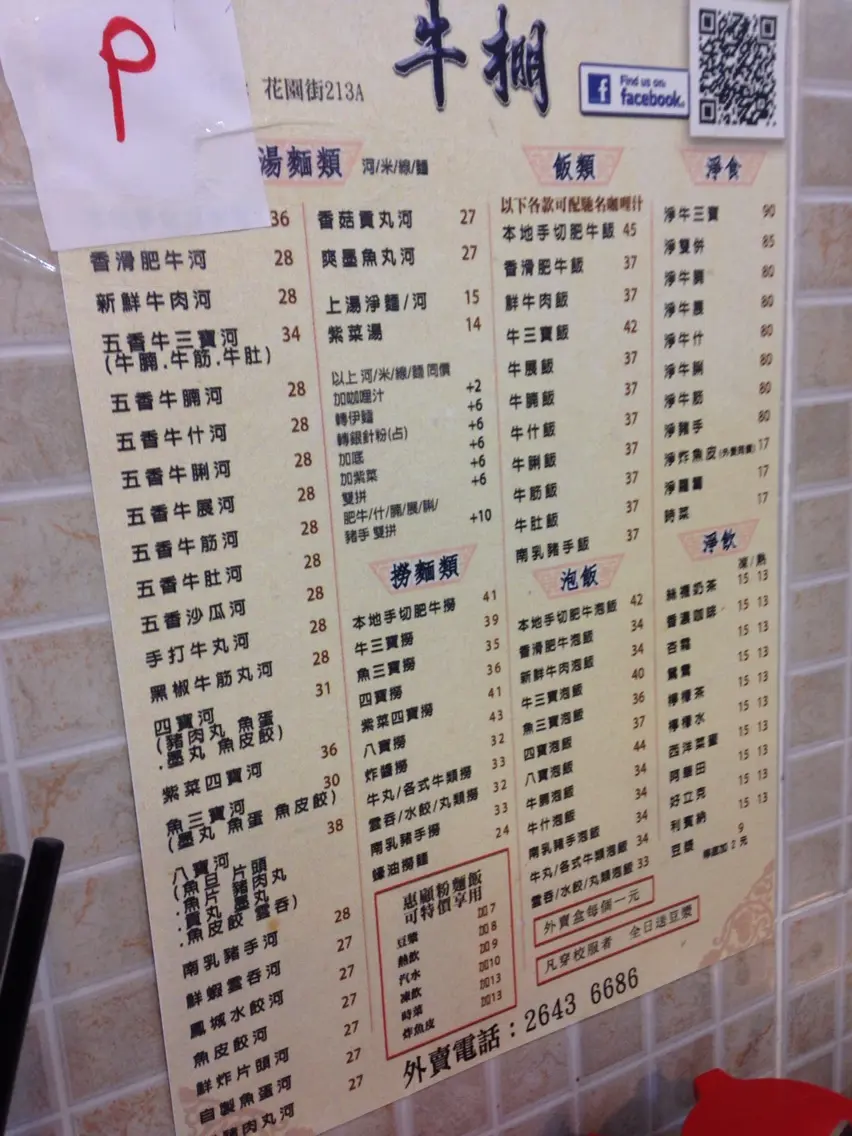 P
牛棚
花園街213A
Find us on:
facebook.
湯麵類 河/米/線/麵
36
香滑肥牛河 28
新鮮牛肉河 28
五香牛三寶河 34
(牛腩.牛筋.牛肚)
五香牛腩河 28
五香牛什河 28
五香牛脷河 28
五香牛展河 28
五香牛筋河 28
五香牛肚河 28
五香沙瓜河 28
手打牛丸河 28
黑椒牛筋丸河 28
四寶河 31
(豬肉丸 魚蛋
.墨丸 魚皮餃)
紫菜四寶河 36
魚三寶河 30
(墨丸 魚蛋 魚皮餃)
八寶河 38
(魚旦 片頭
.魚片 豬肉丸
.貢丸 墨丸
.魚皮餃 雲吞)
南乳豬手河 28
鮮蝦雲吞河 27
鳳城水餃河 27
魚皮餃河 27
鮮炸片頭河 27
自製魚蛋河 27
豬肉丸河 27
香菇貢丸河 27
爽墨魚丸河 27
上湯淨麵/河 15
紫菜湯 14
以上 河/米/線/麵 同價
加咖喱汁 +2
轉伊麵 +6
轉銀針粉(占) +6
加底 +6
加紫菜 +6
雙拼 +6
肥牛/什/腩/展/脷/
豬手 雙拼 +10
撈麵類
本地手切肥牛撈 41
牛三寶撈 39
魚三寶撈 35
四寶撈 36
紫菜四寶撈 41
八寶撈 43
炸醬撈 32
牛丸/各式牛類撈 33
雲吞/水餃/丸類撈 32
南乳豬手撈 33
蠔油撈麵 24
惠顧粉麵飯
可特價享用
豆漿 加7
熱飲 加8
汽水 加9
凍飲 加10
時菜 加13
炸魚皮 加13
飯類
以下各款可配馳名咖喱汁
本地手切肥牛飯 45
香滑肥牛飯 37
鮮牛肉飯 37
牛三寶飯 42
牛展飯 37
牛腩飯 37
牛什飯 37
牛脷飯 37
牛筋飯 37
牛肚飯 37
南乳豬手飯 37
泡飯
本地手切肥牛泡飯 42
香滑肥牛泡飯 34
新鮮牛肉泡飯 34
牛三寶泡飯 40
魚三寶泡飯 36
四寶泡飯 37
八寶泡飯 44
牛腩泡飯 34
牛什泡飯 34
南乳豬手泡飯 34
牛丸/各式牛類泡飯 34
雲吞/水餃/丸類泡飯 33
外賣盒每個一元
凡穿校服者 全日送豆漿
淨食
淨牛三寶 90
淨雙併 85
淨牛腩 80
淨牛展 80
淨牛什 80
淨牛脷 80
淨牛筋 80
淨豬手 80
淨炸魚皮 17
淨蘿蔔 17
時菜 17
淨飲
凍/熱
絲襪奶茶 15 13
香濃咖啡 15 13
杏霜 15 13
鴛鴦 15 13
檸檬茶 15 13
檸檬水 15 13
西洋菜蜜 15 13
阿華田 15 13
好立克 15 13
利賓納 15 13
豆漿 9
凍飲加2元
外賣電話:2643 6686